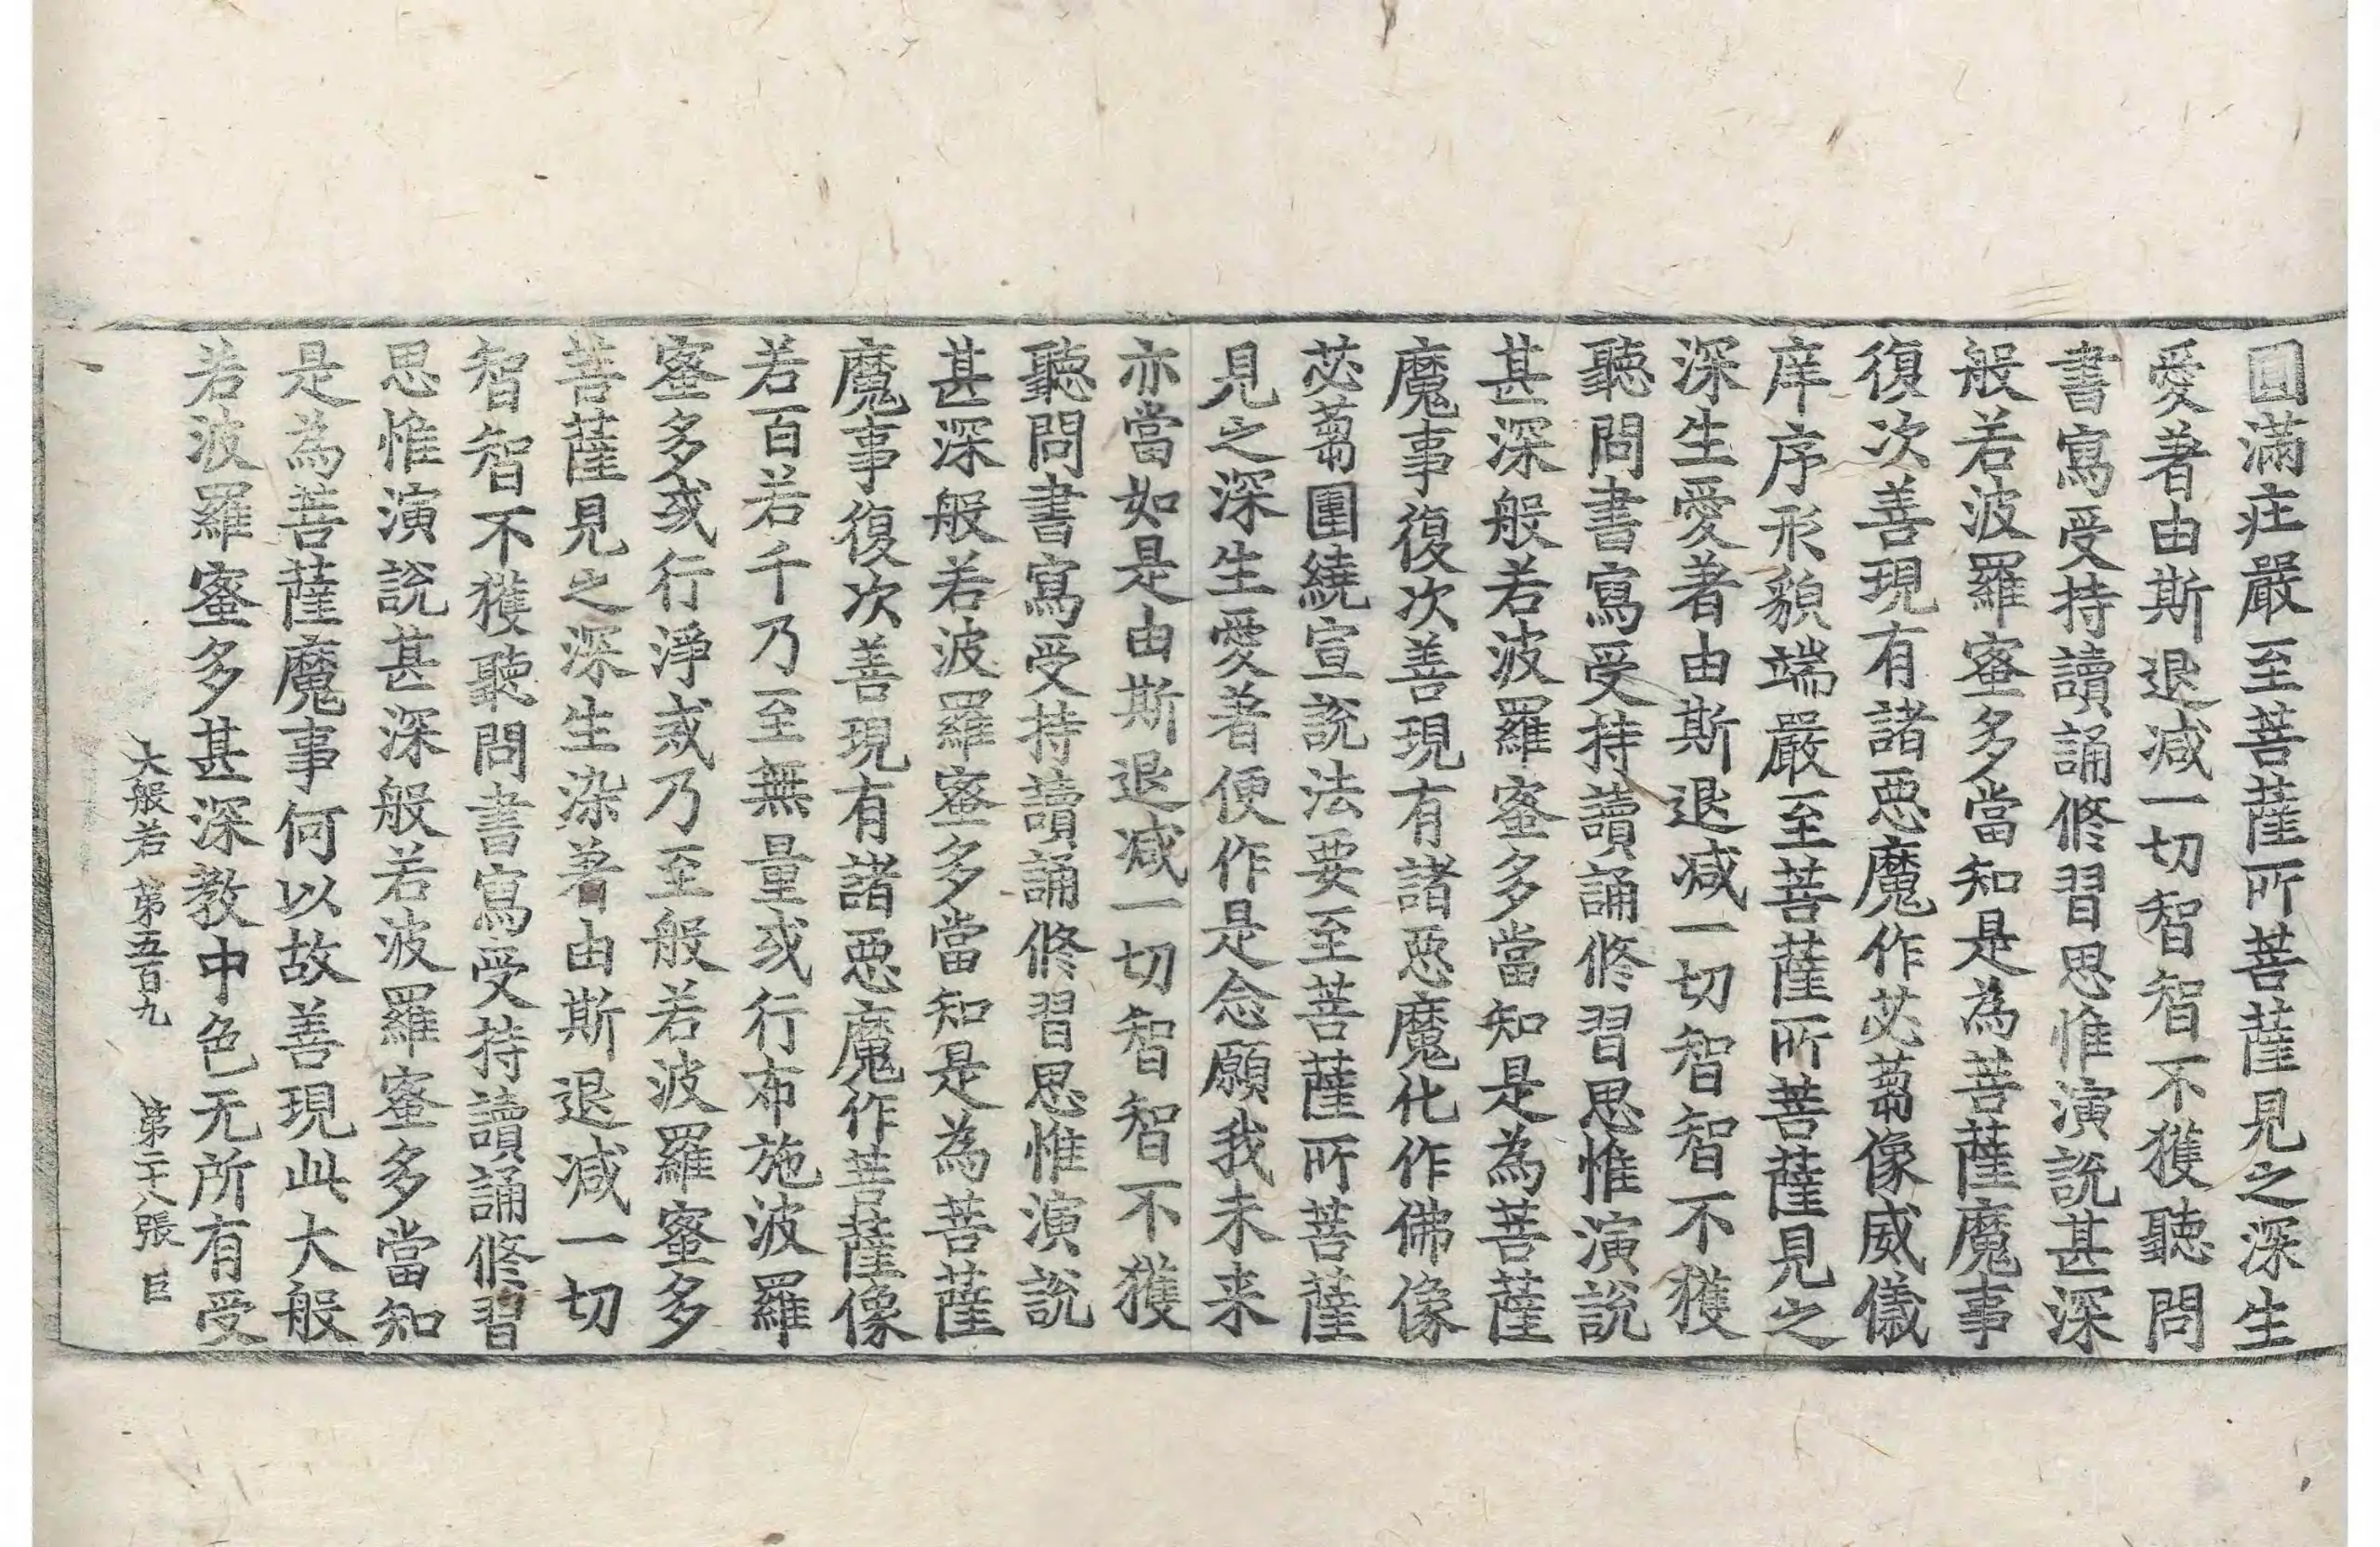 圓滿庄嚴至菩薩所菩薩見之深生
愛著由斯退减一切智智不獲聽問
書寫受持讀誦修習思惟演說甚深
般若波羅蜜多當知是為菩薩魔事
復次善現有諸惡魔作苾蒭像威儀
庠序形貌端嚴至菩薩所菩薩見之
深生愛著由斯退减一切智智不獲
聽問書寫受持讀誦修習思惟演說
甚深般若波羅蜜多當知是為菩薩
魔事復次善現有諸惡魔化作佛像
苾蒭圍繞宣說法要至菩薩所菩薩
見之深生愛著便作是念願我未来
亦當如是由斯退减一切智智不獲
聽問書寫受持讀誦修習思惟演說
甚深般若波羅蜜多當知是為菩薩
魔事復次善現有諸惡魔作菩薩像
若百若千乃至無量或行布施波羅
蜜多或行淨戒乃至般若波羅蜜多
菩薩見之深生染著由斯退减一切
智智不獲聽問書寫受持讀誦修習
思惟演說甚深般若波羅蜜多當知
是為菩薩魔事何以故善現此大般
若波羅蜜多甚深教中色无所有受
大般若第五百九 第二十八張 巨